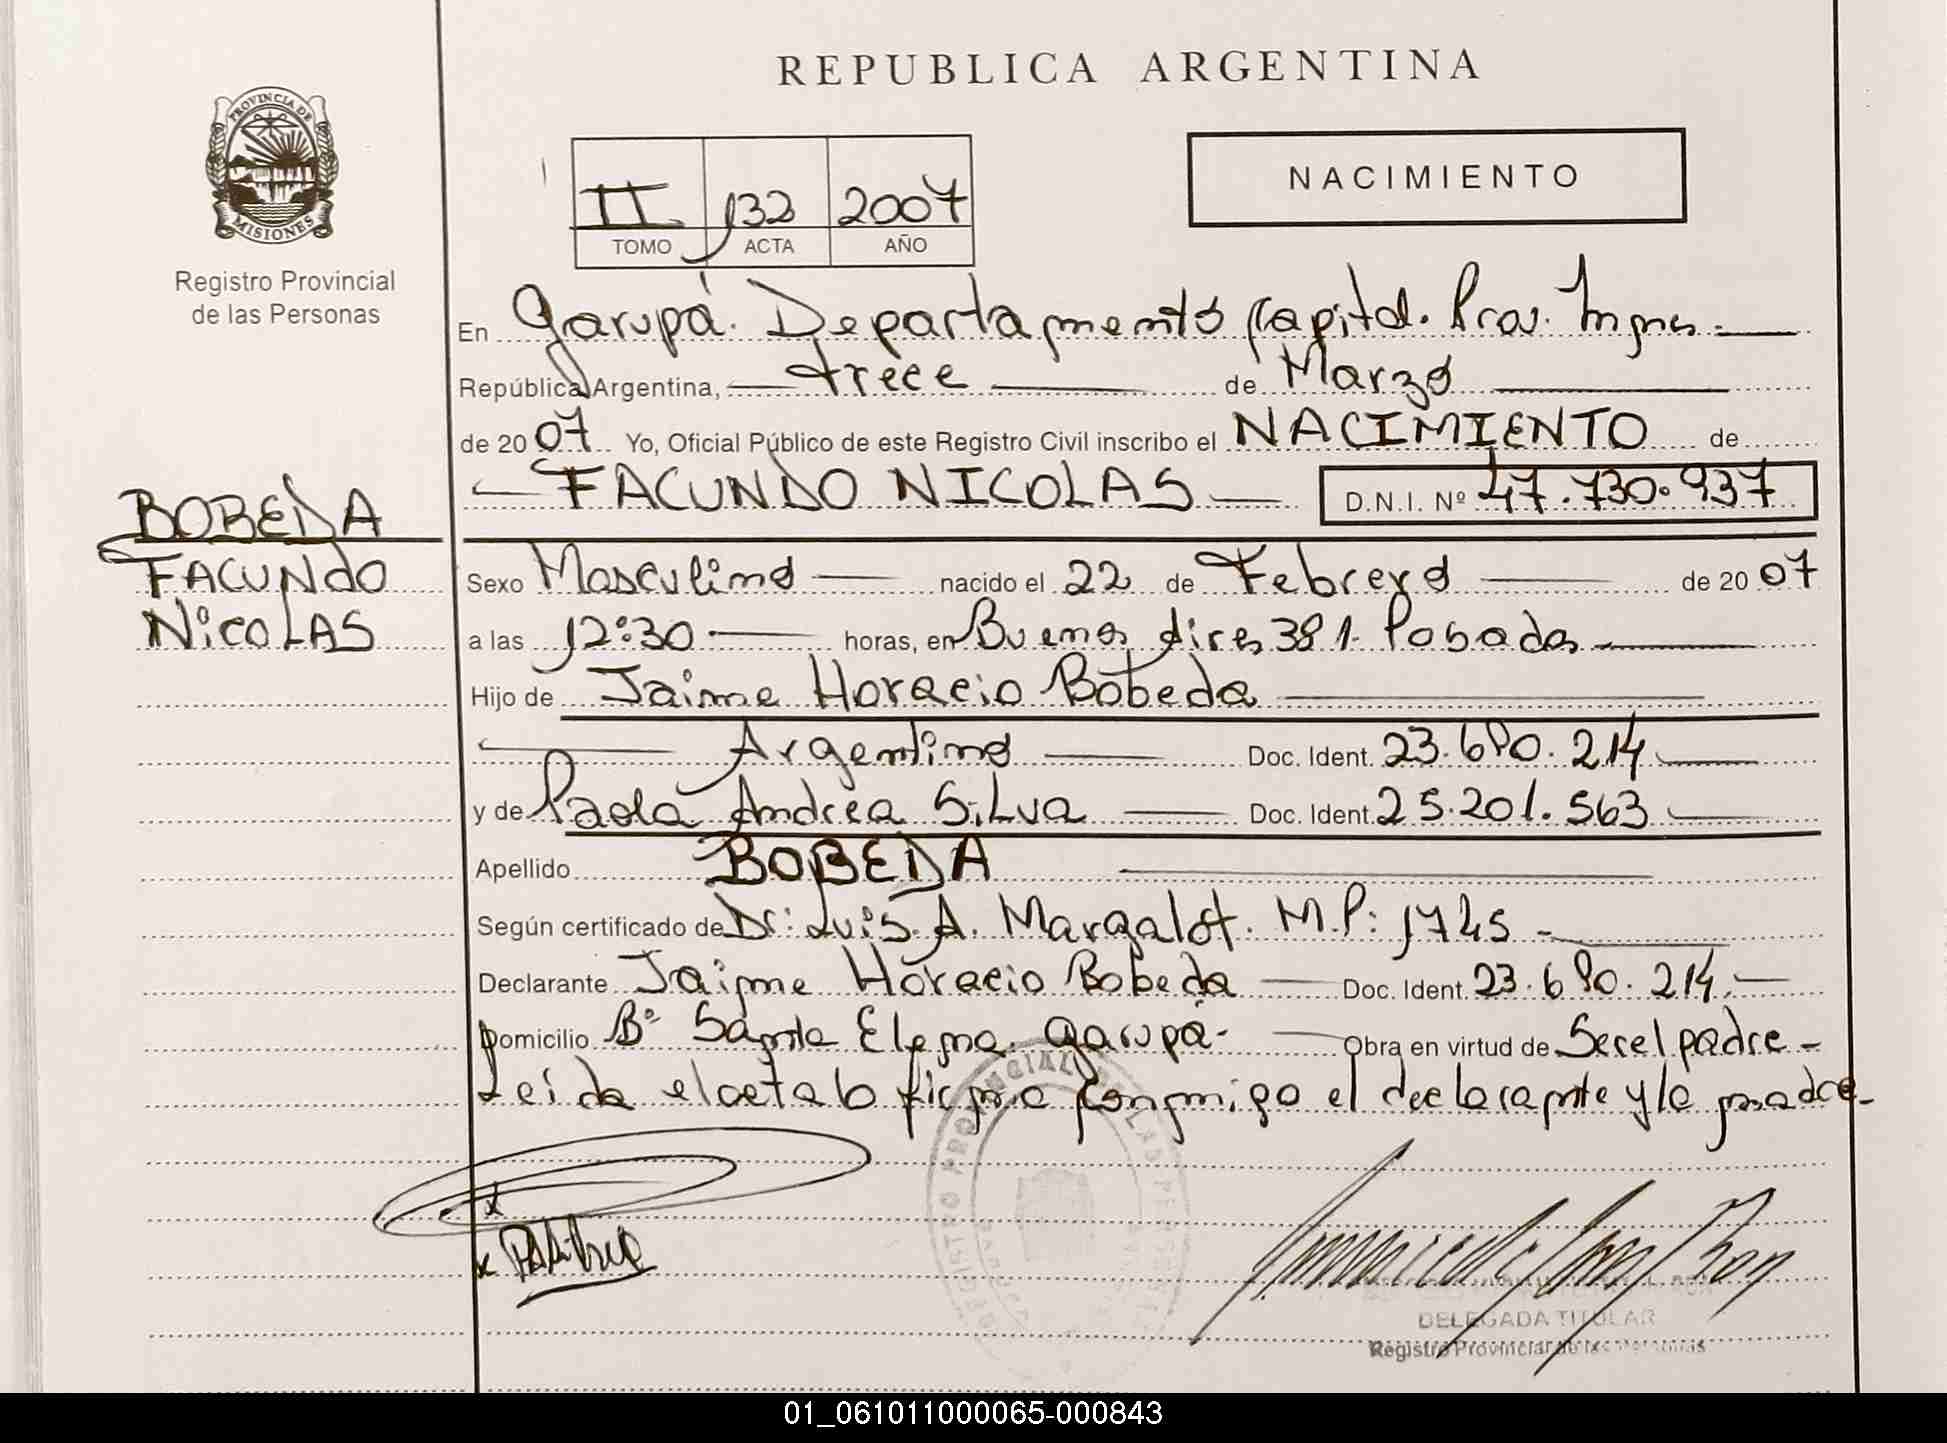 REPUBLICA ARGENTINA
PROVINCIA DE
MISIONES
Registro Provincial
de las Personas
II 132 2007
TOMO ACTA AÑO
NACIMIENTO
En Garupá. Departamento Capital. Prov. Mnes.
República Argentina, trece de Marzo
de 2007 Yo, Oficial Público de este Registro Civil inscribo el NACIMIENTO de
FACUNDO NICOLAS D.N.I. Nº 47.730.937
BOBEDA
FACUNdO
NicoLAS
Sexo Masculino nacido el 22 de Febrero de 2007
a las 12:30 horas, en Buenos Aires 381. Posadas
Hijo de Jaime Horacio Bobeda
Argentino Doc. Ident. 23.690.214
y de Paola Andrea Silva Doc. Ident. 25.201.563
Apellido BOBEDA
Según certificado de Dr: Luis. A. Margalot. M.P: 1745
Declarante Jaime Horacio Bobeda Doc. Ident. 23.690.214
Domicilio Bº Santa Elena. Garupá- Obra en virtud de Ser el padre-
Leída el acta la firma conmigo el declarante y la madre-
REGISTRO PROVINCIAL DE LAS PERSONAS
DELEGADA TITULAR
Registro Provincial de las Personas
01_061011000065-000843